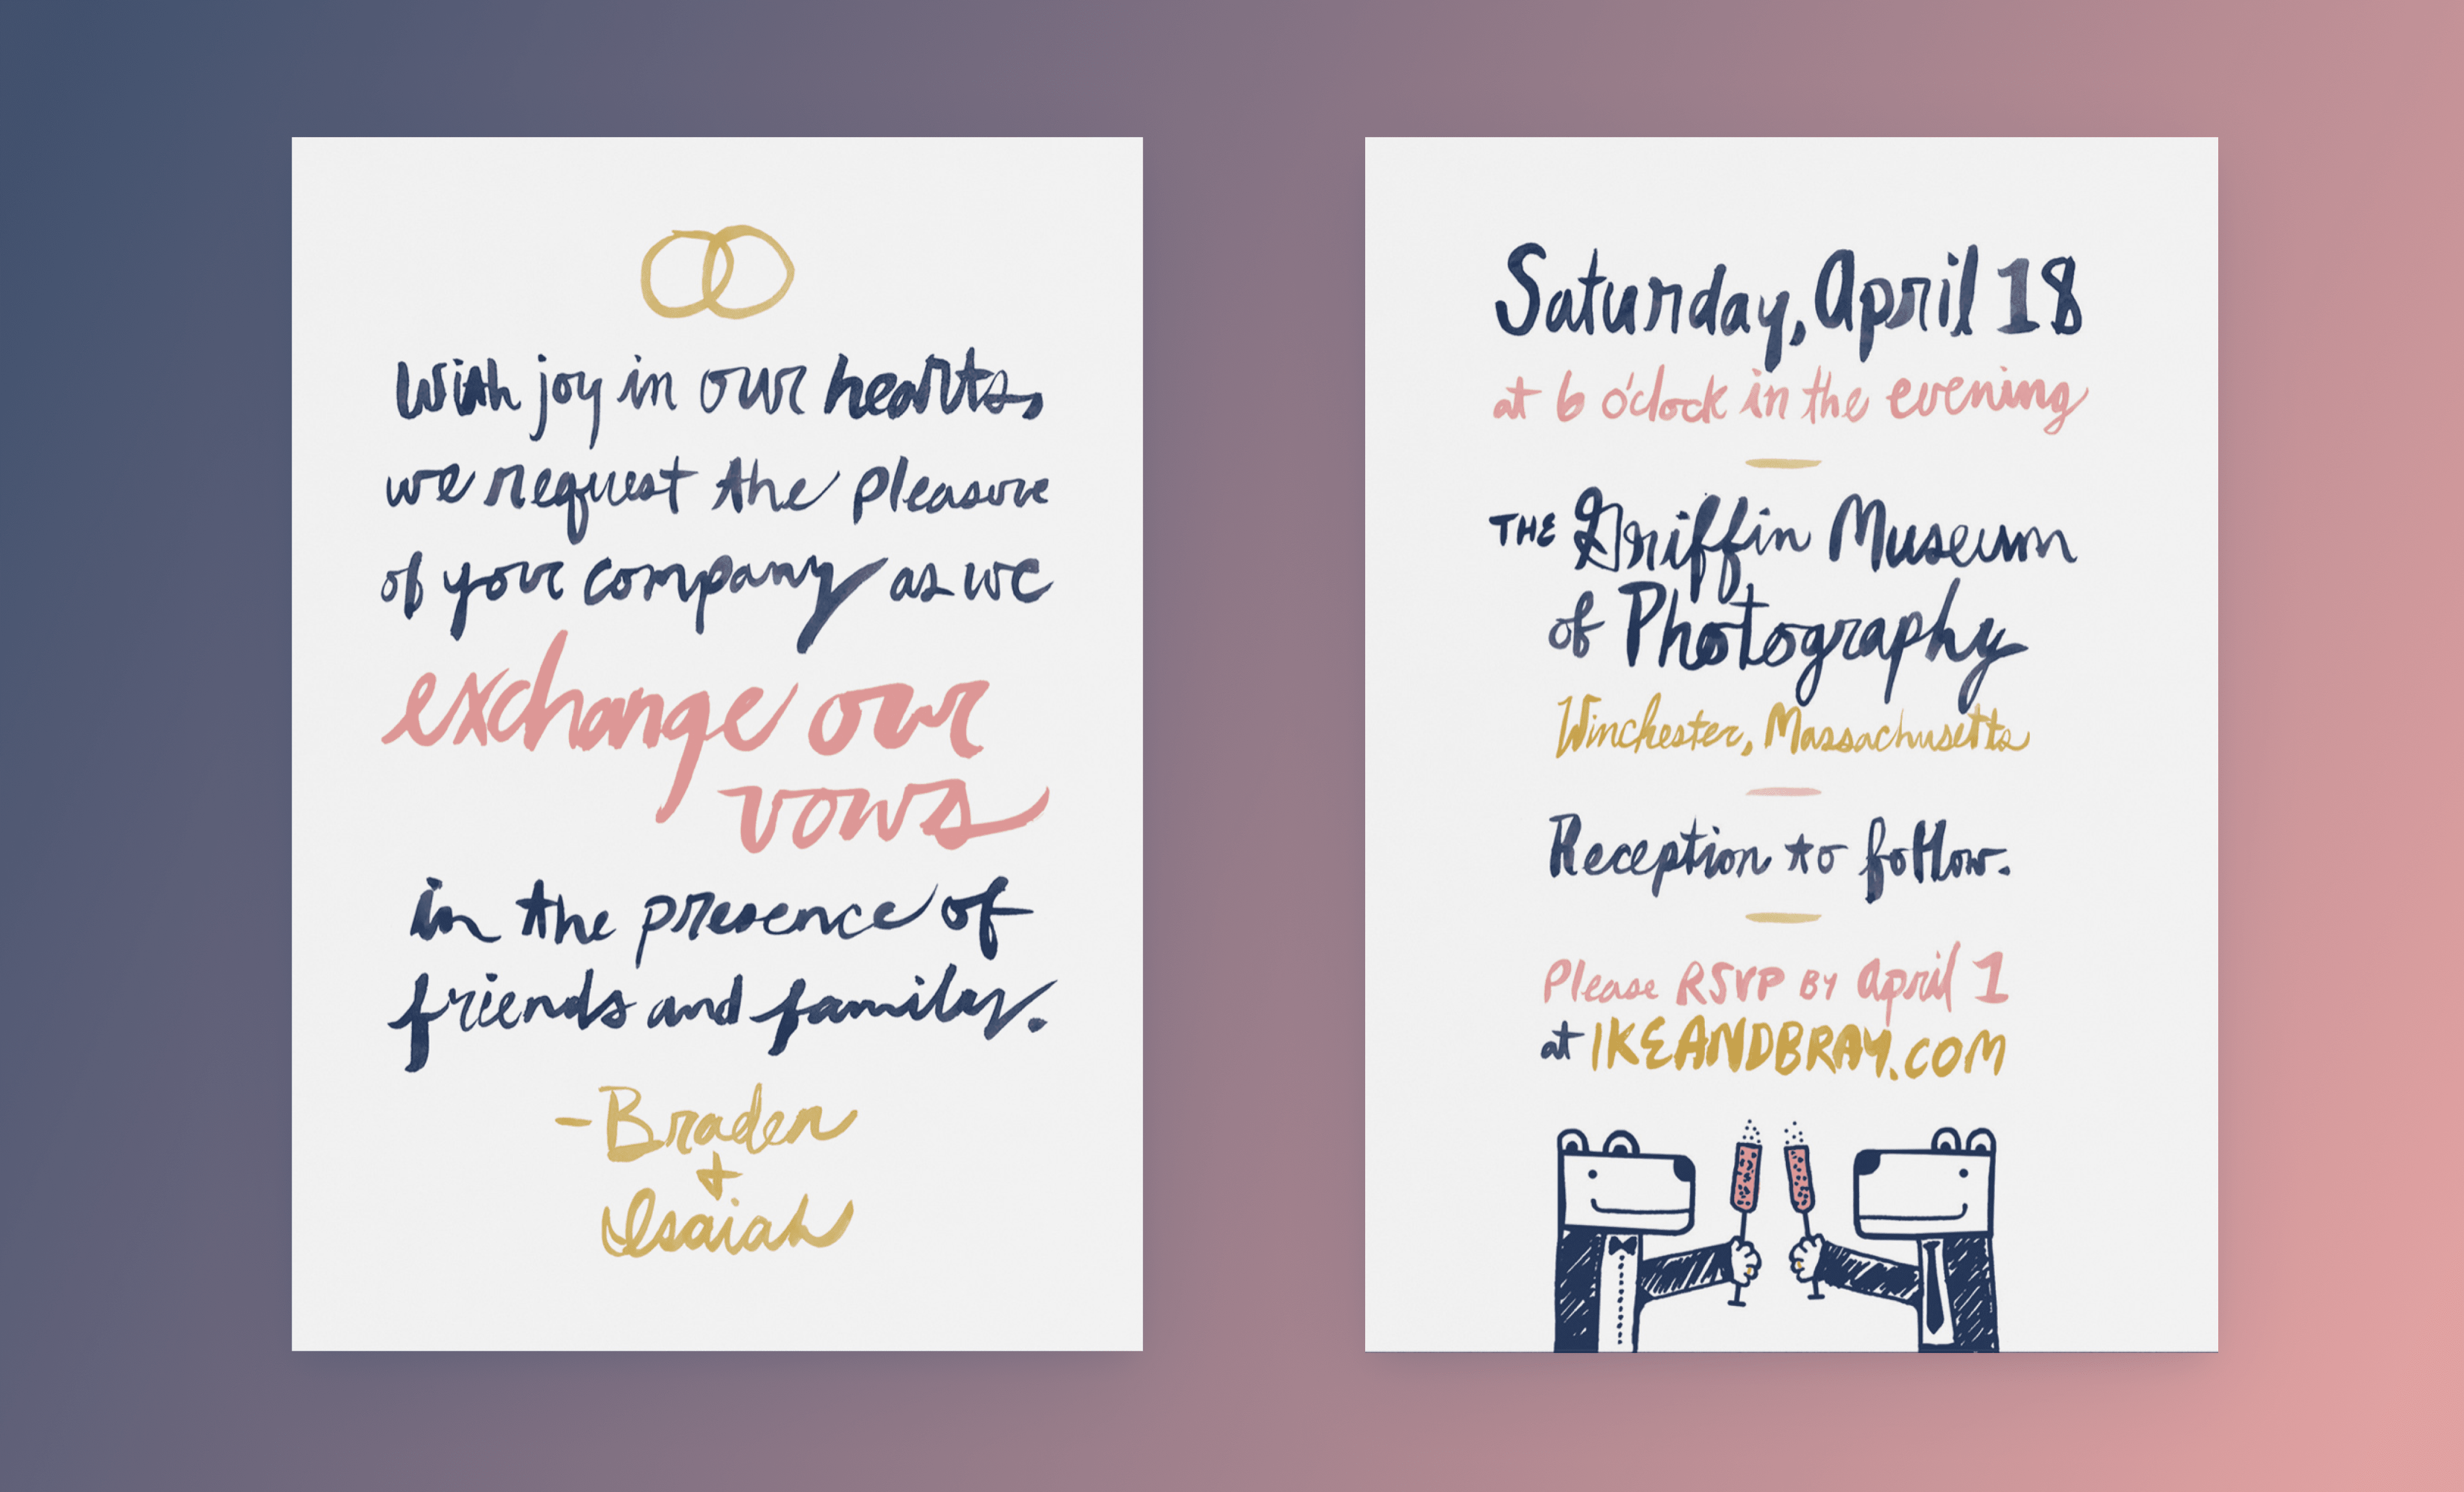 With joy in our hearts,
we request the pleasure
of your company as we
exchange our
vows
in the presence of
friends and family.
- Braden
+
Isaiah
Saturday, April 18
at 6 o'clock in the evening
THE Griffin Museum
of Photography
Winchester, Massachusetts
Reception to follow.
Please RSVP BY April 1
at IKEANDBRAY.COM